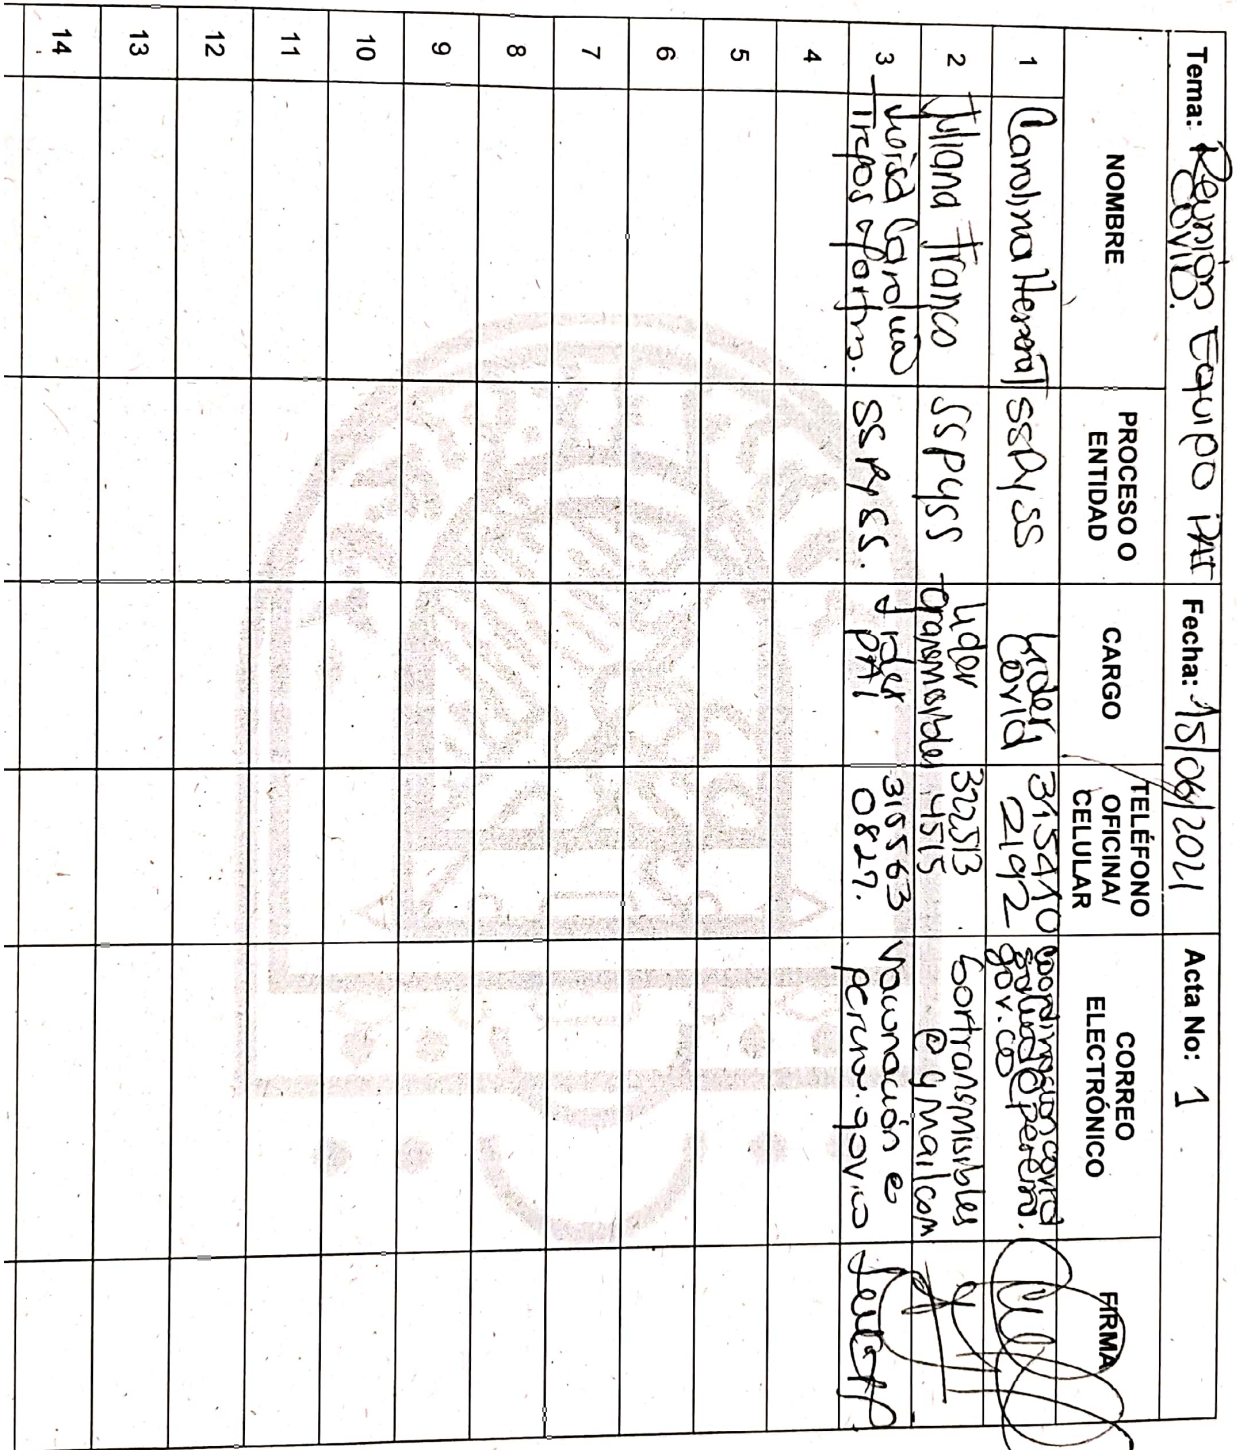 Tema: Reunión Equipo PAI COVID. Fecha: 15/06/2021 Acta No: 1
NOMBRE PROCESO O ENTIDAD CARGO TELÉFONO OFICINA/ CELULAR CORREO ELECTRÓNICO FIRMA
1 Carolina Herrera SSPySS Lider Covid 315410 2192 coordinacioncovid gov.co
2 Juliana Franco SSPySS Lider transmisibles 322513 4515 @gmail.com
3 Luisa Carolina SSPySS. Lider PAI 315563 0827. vacunación
4
5
6
7
8
9
10
11
12
13
14